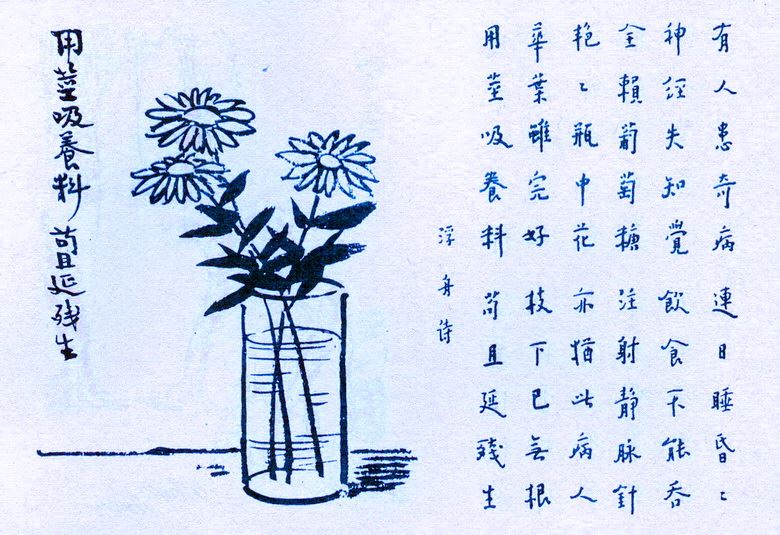 有人患奇病 連日睡昏〻
神経失知覺 飲食不能吞
全賴葡萄糖 注射靜脉針
艳〻瓶中花 亦猶此病人
華葉雖完好 枝下已無根
用莖吸養料 苟且延殘生
浮舟诗
用莖吸養料 苟且延殘生